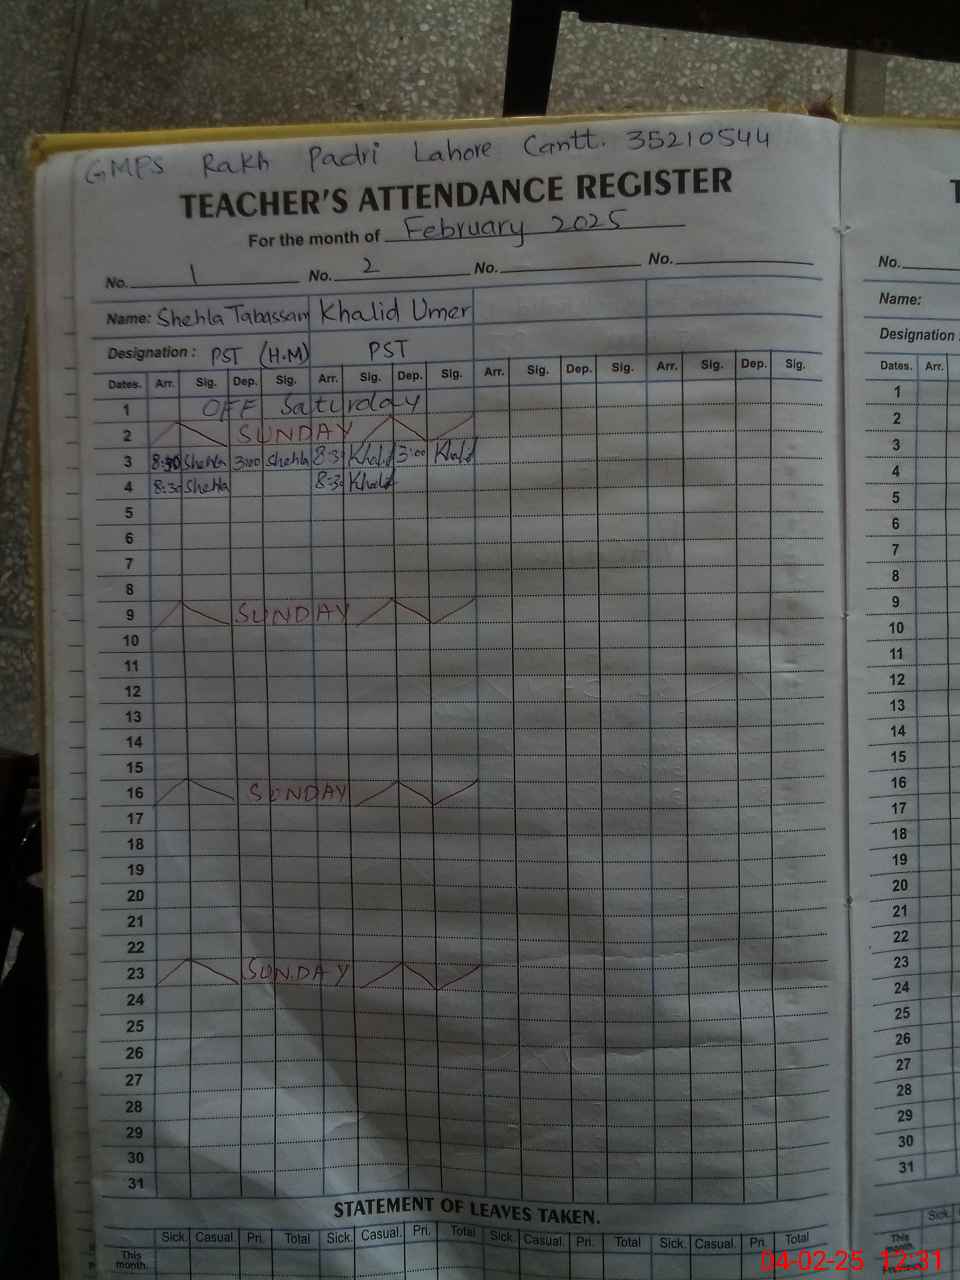 GMPS Rakh Padri Lahore Cantt. 35210544
TEACHER'S ATTENDANCE REGISTER
For the month of February 2025
No. 1 No. 2 No. No.
Name: Shehla Tabassam Khalid Umer
Designation: PST (H.M) PST
Dates. Arr. Sig. Dep. Sig. Arr. Sig. Dep. Sig. Arr. Sig. Dep. Sig. Arr. Sig. Dep. Sig.
1 OFF Saturday
2 SUNDAY
3 8:30 Shehla 3:00 Shehla 8:3 Khalid 3:00 Khalid
4 8:30 Shehla 8:30 Khalid
5
6
7
8
9 SUNDAY
10
11
12
13
14
15
16 SUNDAY
17
18
19
20
21
22
23 SUNDAY
24
25
26
27
28
29
30
31
STATEMENT OF LEAVES TAKEN.
Sick. Casual. Pri. Total Sick. Casual. Pri. Total Sick. Casual. Pri. Total Sick. Casual. Pri. Total
This month.
No.
Name:
Designation
Dates. Arr.
1
2
3
4
5
6
7
8
9
10
11
12
13
14
15
16
17
18
19
20
21
22
23
24
25
26
27
28
29
30
31
Sick.
This month.
04-02-25 12:31